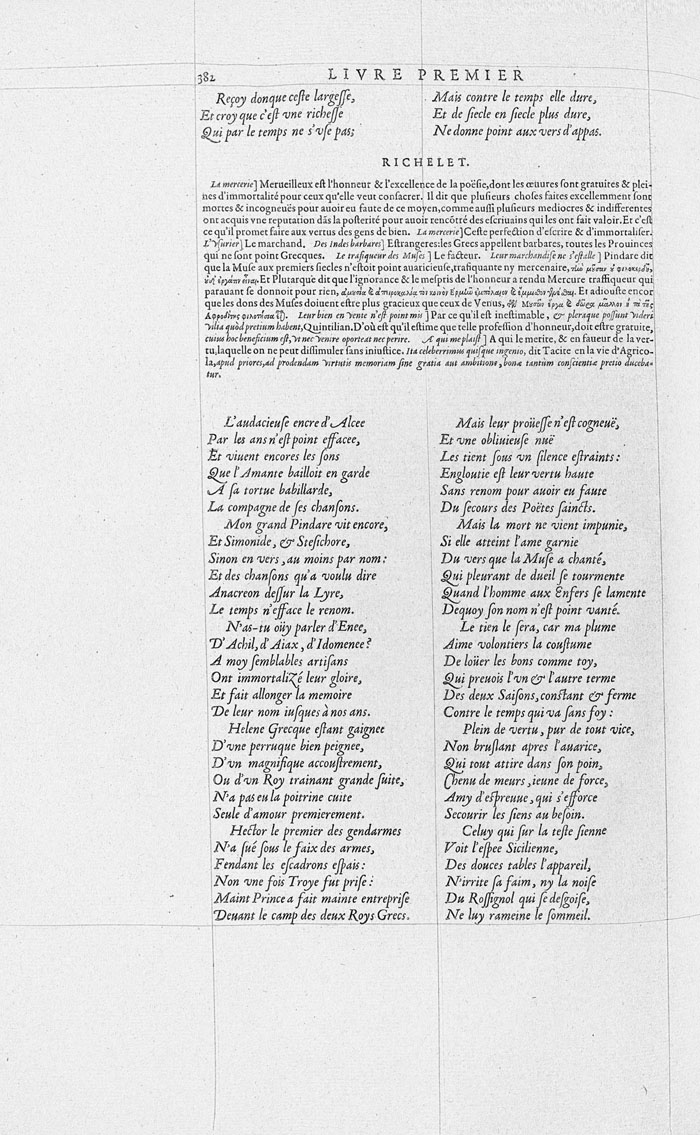 382 LIVRE PREMIER
Reçoy donque ceſte largeſſe,
Et croy que c'eſt vne richeſſe
Qui par le temps ne s'vſe pas;
Mais contre le temps elle dure,
Et de ſiecle en ſiecle plus dure,
Ne donne point aux vers d'appas.
RICHELET.
La mercerie] Merueilleux eſt l'honneur & l'excellence de la poëſie, dont les œuures ſont gratuites & plei-
nes d'immortalité pour ceux qu'elle veut conſacrer. Il dit que pluſieurs choſes faites excellemment ſont
mortes & incogneuës pour auoir eu faute de ce moyen, comme auſſi pluſieurs mediocres & indifferentes
ont acquis vne reputation dãs la poſterité pour auoir rencõtré des eſcriuains qui les ont fait valoir. Et c'eſt
ce qu'il promet faire aux vertus des gens de bien. La mercerie] Ceſte perfection d'eſcrire & d'immortaliſer.
L'Vſurier] Le marchand. Des Indes barbares] Eſtrangeres: les Grecs appellent barbares, toutes les Prouinces
qui ne ſont point Grecques. Le trafiqueur des Muſes] Le facteur. Leur marchandiſe ne s'eſtalle] Pindare dit
que la Muſe aux premiers ſiecles n'eſtoit point auaricieuse, trafiquante ny mercenaire,
Et Plutarque dit que l'ignorance & le meſpris de l'honneur a rendu Mercure traffiqueur qui
parauant ſe donnoit pour rien, Et adiouſte encor
que les dons des Muſes doiuent eſtre plus gracieux que ceux de Venus,
Leur bien en vente n'eſt point mis] Par ce qu'il est ineſtimable, & pleraque poſſunt videri
vilia quòd pretium habent, Quintilian. D'où eſt qu'il eſtime que telle profeſſion d'honneur, doit eſtre gratuite,
cuius hoc beneficium eſt, vt nec venire oporteat nec perire. A qui me plaiſt] A qui le merite, & en faueur de la ver-
tu, laquelle on ne peut diſſimuler ſans iniuſtice. Ita celeberrimus quiſque ingenio, dit Tacite en la vie d'Agrico-
la, apud priores, ad prodendam virtutis memoriam ſine gratia aut ambitione, bonæ tantùm conſcientiæ pretio duceba-
tur.
L'audacieuſe encre d'Alcee
Par les ans n'eſt point effacee,
Et viuent encores les ſons
Que l'Amante bailloit en garde
A ſa tortue babillarde,
La compagne de ſes chanſons.
Mon grand Pindare vit encore,
Et Simonide, & Steſichore,
Sinon en vers, au moins par nom:
Et des chanſons qu'a voulu dire
Anacreon deſſur la Lyre,
Le temps n'efface le renom.
N'as-tu oüy parler d'Enee,
D'Achil, d'Aiax, d'Idomence?
A moy ſemblables artiſans
Ont immortalizé leur gloire,
Et fait allonger la memoire
De leur nom iuſques à nos ans.
Helene Grecque eſtant gaignee
D'vne perruque bien peignee,
D'vn magnifique accouſtrement,
Ou d'vn Roy trainant grande ſuite,
N'a pas eu la poitrine cuite
Seule d'amour premierement.
Hector le premier des gendarmes
N'a ſué ſous le faix des armes,
Fendant les eſcadrons eſpais:
Non vne fois Troye fut priſe:
Maint Prince a fait mainte entrepriſe
Deuant le camp des deux Roys Grecs.
Mais leur proüeſſe n'eſt cogneuë,
Et vne obliuieuſe nuë
Les tient ſous vn ſilence eſtraints:
Engloutie eſt leur vertu haute
Sans renom pour auoir eu faute
Du ſecours des Poëtes ſaincts.
Mais la mort ne vient impunie,
Si elle atteint l'ame garnie
Du vers que la Muſe a chanté,
Qui pleurant de dueil ſe tourmente
Quand l'homme aux Enfers ſe lamente
Dequoy ſon nom n'eſt point vanté.
Le tien le ſera, car ma plume
Aime volontiers la couſtume
De loüer les bons comme toy,
Qui preuois l'vn & l'autre terme
Des deux Saiſons, conſtant & ferme
Contre le temps qui va ſans foy:
Plein de vertu, pur de tout vice,
Non bruſlant apres l'auarice,
Qui tout attire dans ſon poin,
Chenu de meurs, ieune de force,
Amy d'eſpreuue, qui s'efforce
Secourir les ſiens au beſoin.
Celuy qui ſur la teſte ſienne
Voit l'eſpee Sicilienne,
Des douces tables l'appareil,
N'irrite ſa faim, ny la noiſe
Du Roſſignol qui ſe deſgoiſe,
Ne luy rameine le ſommeil.